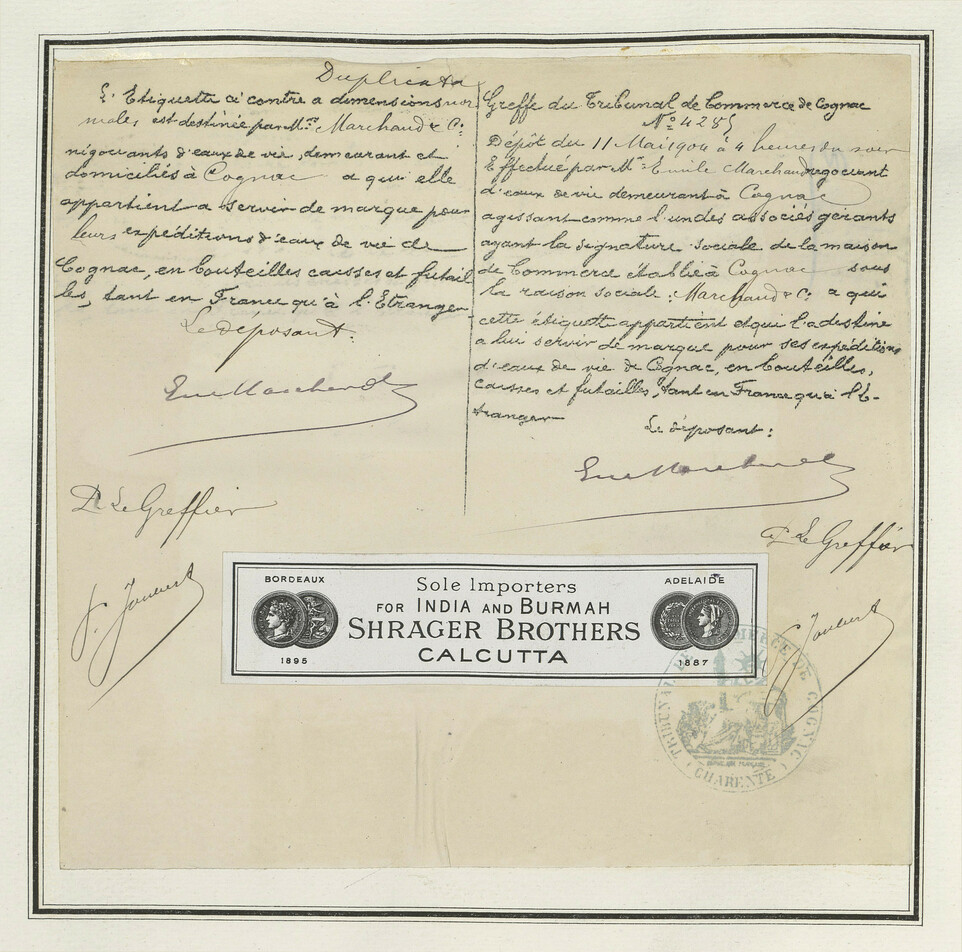 Duplicata
L'Etiquette ci contre a dimensions nor
male, est destinée par Mrs Marchaud & Cie
négociants d'eaux de vie, demeurant et
domiciliés à Cognac a qui elle
appartient a servir de marque pour
leurs expéditions d'eaux de vie de
Cognac, en bouteilles caisses et futail
les, tant en France qu'à l'Etranger
Le déposant:
Greffe du Tribunal de Commerce de Cognac
No 4285
Dépôt du 11 Mai 1904 à 4 heures du soir
Effectué par Mr Emile Marchaud négociant
d'eaux de vie demeurant à Cognac
agissant comme l'un des associés gérants
ayant la signature sociale de la maison
de Commerce établie à Cognac sous
la raison sociale: Marchaud & Cie a qui
cette étiquette appartient et qui l'a destine
a lui servir de marque pour ses expéditions
d'eaux de vie de Cognac, en bouteilles,
caisses et futailles, tant en France qu'à l'É-
tranger
Le déposant:
P. Le Greffier
P. Le Greffier
J. Joubert
J. Joubert
BORDEAUX
1895
Sole Importers
FOR INDIA AND BURMAH
SHRAGER BROTHERS
CALCUTTA
ADELAIDE
1887
TRIBUNAL DE COMMERCE DE COGNAC
(CHARENTE)